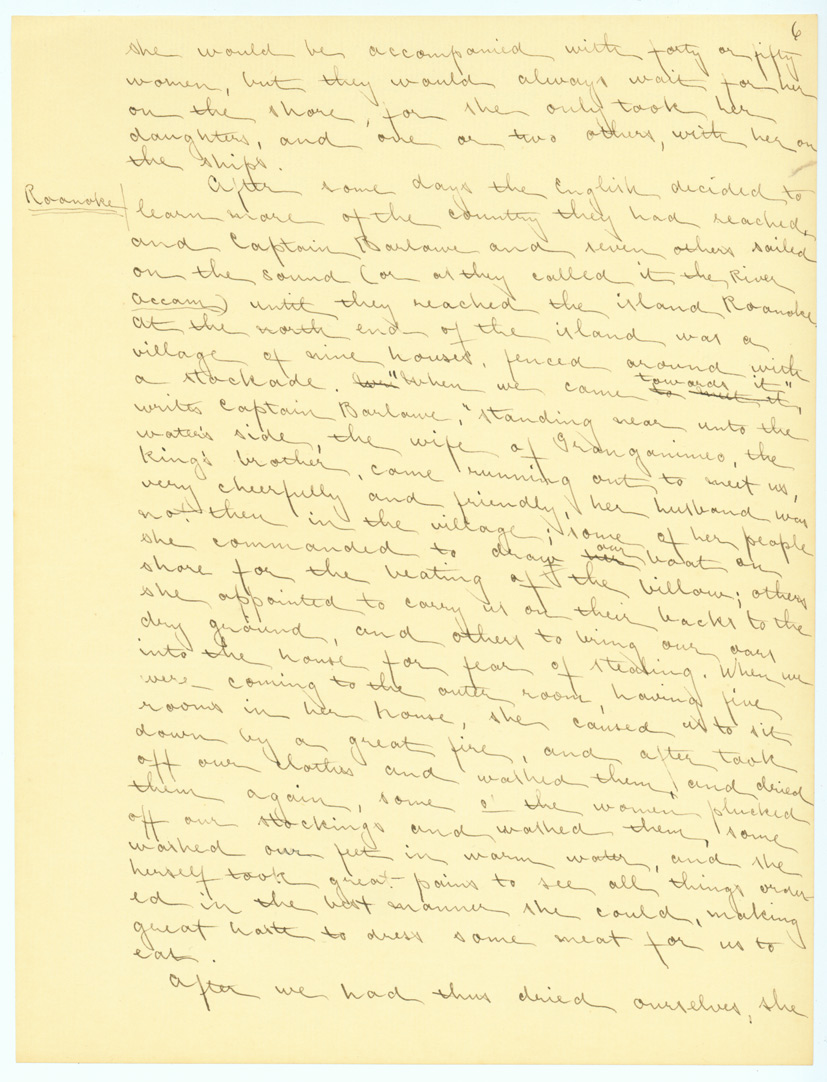 6
she would be accompanied with forty or fifty
women, but they would always wait for her
on the shore, for she only took her
daughters, and one or two others, with her on
the ships.
After some days the English decided to
Roanoke/ learn more of the country they had reached,
and Captain Barlawe and seven others sailed
on the sound (or as they called it the River
Accam) until they reached the island Roanoke.
At the north end of the island was a
village of nine houses, fenced around with
a stockade. "When we came towards it",
to meet it,
writes Captain Barlawe, "standing near unto the
water's side, the wife of Granganimeo, the
King's brother, came running out to meet us,
very cheerfully and friendly, her husband was
not then in the village; some of her people
she commanded to draw our boat on
shore for the beating of the billow; others
she appointed to carry us on their backs to the
dry ground, and others to bring our oars
into the house for fear of stealing. When we
were coming to the outer room, having five
rooms in her house, she caused us to sit
down by a great fire, and after took
off our clothes and washed them, and dried
them again, some o' the women plucked
off our stockings and washed them, some
washed our feet in warm water, and she
herself took great pains to see all things order-
ed in the best manner she could, making
great haste to dress some meat for us to
eat.
After we had thus dried ourselves, she